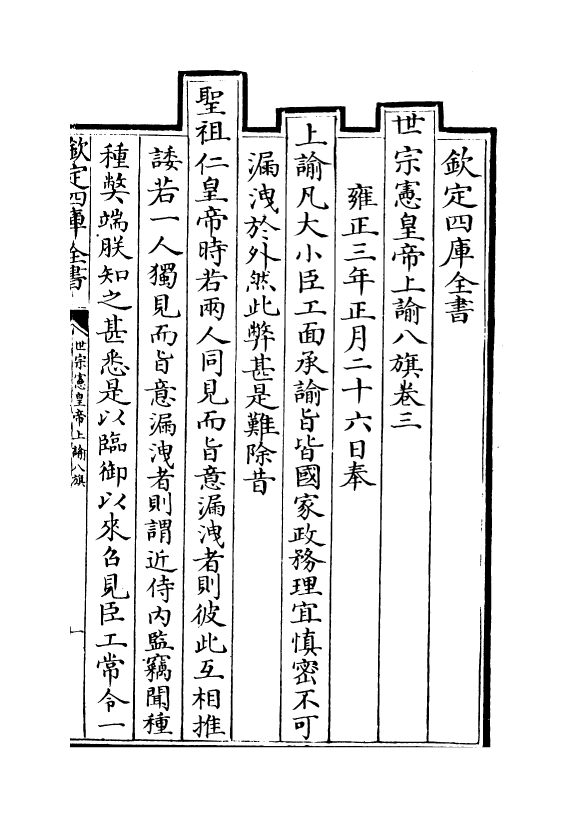 欽定四庫全書
世宗憲皇帝上諭八旗卷三
雍正三年正月二十六日奉
上諭凡大小臣工面承諭旨皆國家政務理宜慎密不可
漏洩於外然此弊甚是難除昔
聖祖仁皇帝時若兩人同見而旨意漏洩者則彼此互相推
諉若一人獨見而旨意漏洩者則謂近侍内監竊聞種
種弊端朕知之甚悉是以臨御以來召見臣工常令一
欽定四庫全書
世宗憲皇帝上諭八旗
一